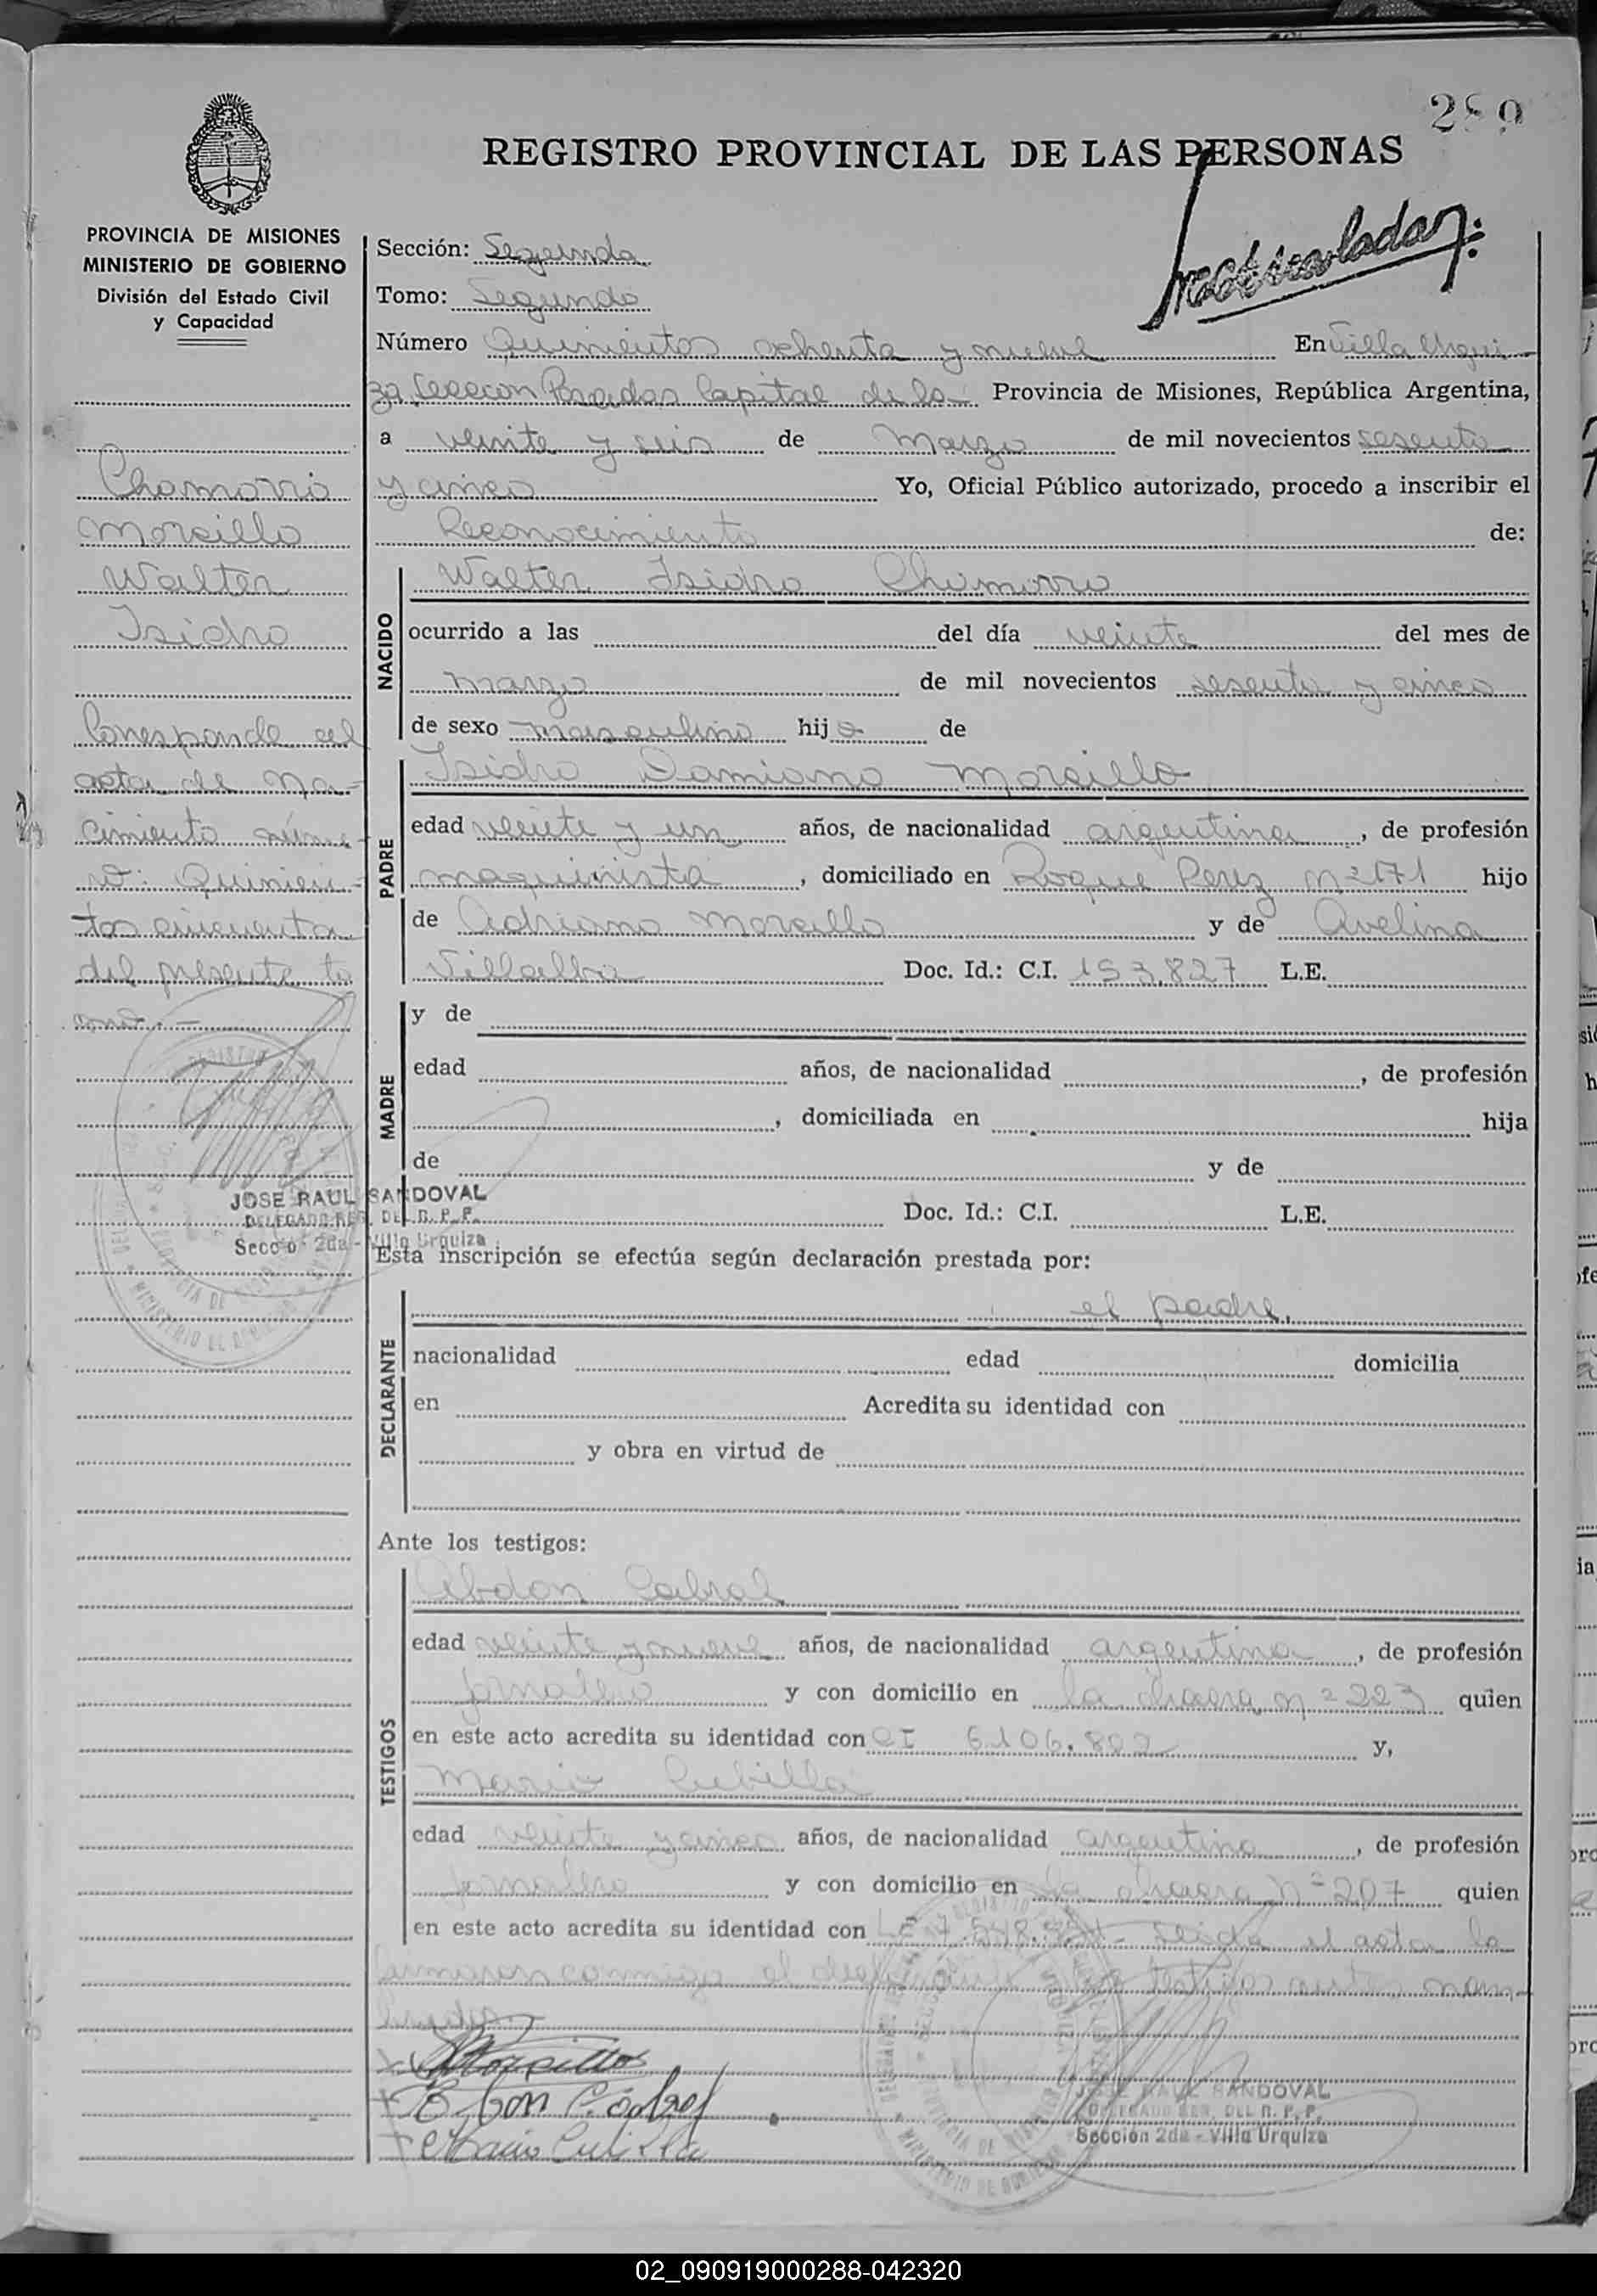 289
REGISTRO PROVINCIAL DE LAS PERSONAS
PROVINCIA DE MISIONES
MINISTERIO DE GOBIERNO
División del Estado Civil
y Capacidad
Matriculado
Sección: Segunda
Tomo: Segundo
Número Quinientos ochenta y nueve En Villa Urqui
za Seccion Posadas Capital de la Provincia de Misiones, República Argentina,
a veinte y seis de Marzo de mil novecientos sesenta
y cinco Yo, Oficial Público autorizado, procedo a inscribir el
Reconocimiento de:
Chamorro
Morcillo
Walter
Isidro
Corresponde al
acta de Na-
cimiento núme-
ro: Quinien-
tos cincuenta
del presente to
mo.-
NACIDO
Walter Isidro Chamorro
ocurrido a las del día veinte del mes de
marzo de mil novecientos sesenta y cinco
de sexo masculino hijo de
PADRE
Isidro Damiano Morcillo
edad veinte y un años, de nacionalidad argentina, de profesión
maquinista, domiciliado en Roque Perez nº 2171 hijo
de Adriano Morcillo y de Avelina
Villalba Doc. Id.: C.I. 153.827 L.E.
MADRE
y de
edad años, de nacionalidad , de profesión
, domiciliada en hija
de y de
Doc. Id.: C.I. L.E.
JOSE RAUL SANDOVAL
DELEGADO REG. DEL R. P. P.
Sección 2da - Villa Urquiza
Esta inscripción se efectúa según declaración prestada por:
DECLARANTE
el padre.
nacionalidad edad domicilia
en Acredita su identidad con
y obra en virtud de
Ante los testigos:
TESTIGOS
Abdon Cabral
edad veinte y nueve años, de nacionalidad argentina, de profesión
jornalero y con domicilio en la chacra nº 223 quien
en este acto acredita su identidad con CI 6106.802 y,
Mario Cubilla
edad veinte y cinco años, de nacionalidad argentina, de profesión
jornalero y con domicilio en la chacra Nº 207 quien
en este acto acredita su identidad con LE Leida el acta la
firmaron conmigo el declarante y los testigos antes nom-
brados
Morcillo
Cabral
Mario Cubilla
JOSE RAUL SANDOVAL
DELEGADO REG. DEL R. P. P.
Sección 2da - Villa Urquiza
02_090919000288-042320